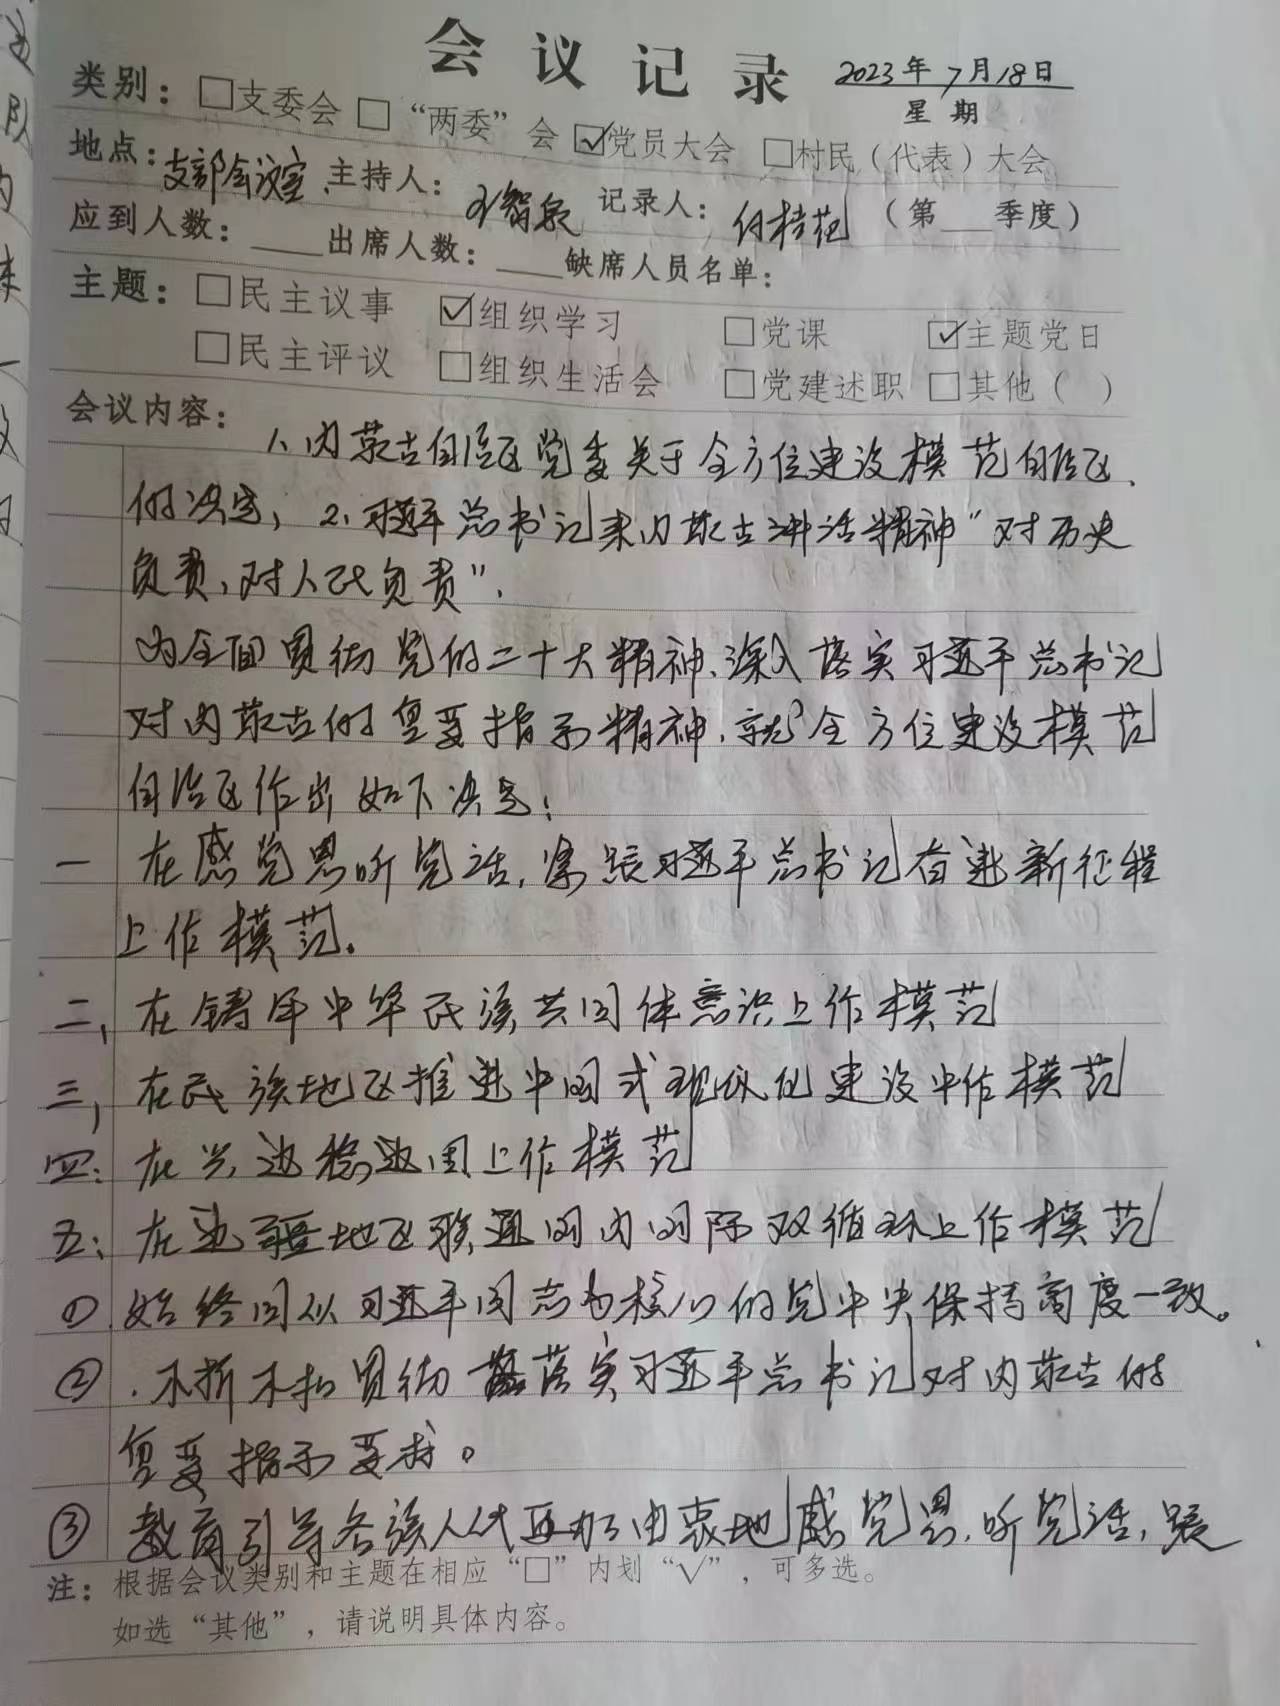 会议记录
2023年7月18日
星期
类别：□支委会 □“两委”会 ☑党员大会 □村民（代表）大会
地点：支部会议室、主持人： 记录人：付桂范（第___季度）
应到人数：____出席人数：____缺席人员名单：
主题：□民主议事 ☑组织学习 □党课 ☑主题党日
□民主评议 □组织生活会 □党建述职 □其他（ ）
会议内容：
1、内蒙古自治区党委关于全方位建设模范自治区、
的决定；2、习近平总书记来内蒙古讲话精神“对历史
负责，对人民负责”，
为全面贯彻党的二十大精神、深入落实习近平总书记
对内蒙古的重要指示精神，就全方位建设模范
自治区作出如下决定：
一 在感党恩听党话，紧跟习近平总书记奋进新征程
上作模范。
二、在铸牢中华民族共同体意识上作模范
三、在民族地区推进中国式现代化建设中作模范
四：在兴边稳边固上作模范
五：在边疆地区联通国内国际双循环上作模范
① 始终同以习近平同志为核心的党中央保持高度一致。
②．不折不扣贯彻落实习近平总书记对内蒙古的
重要指示要求。
③ 教育引导各族人民更加由衷地感党恩，听党话，跟
注：根据会议类别和主题在相应“□”内划“√”，可多选。
如选“其他”，请说明具体内容。